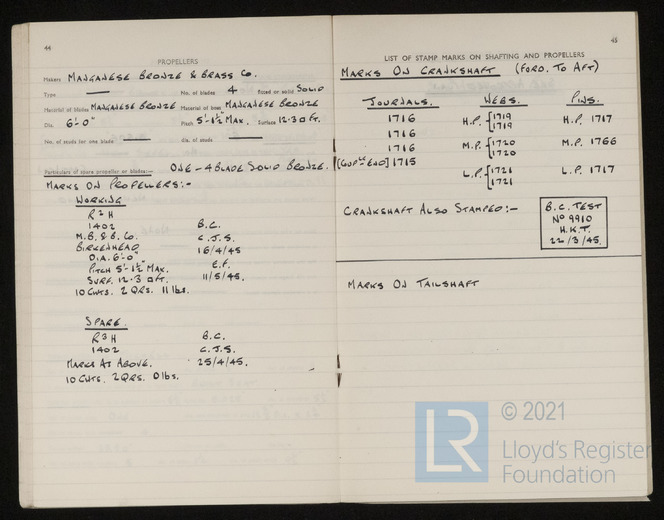 44
PROPELLERS
Makers MANGANESE BRONZE & BRASS CO.
Type — No. of blades 4 fitted or solid SOLID
Material of blades MANGANESE BRONZE Material of boss MANGANESE BRONZE
Dia. 6'-0" Pitch 5'-1½" MAX. Surface 12.3 □ FT.
No. of studs for one blade — dia. of studs —
Particulars of spare propeller or blades:— ONE - 4 BLADE SOLID BRONZE.
MARKS ON PROPELLERS:-
WORKING
R2H
1402 B.C.
M.B. & B. Co. C.J.S.
BIRKENHEAD 16/4/45
DIA. 6'-0" E.F.
PITCH 5'-1½" MAX. 11/5/45.
SURF. 12.3 □ FT.
10 CWTS. 2 QRS. 11 lbs.
SPARE
R3H B.C.
1402 C.J.S.
MARKS AS ABOVE. 25/4/45.
10 CWTS. 2 QRS. 0 lbs.
45
LIST OF STAMP MARKS ON SHAFTING AND PROPELLERS
MARKS ON CRANKSHAFT (FORD. TO AFT)
JOURNALS. WEBS. PINS.
1716 H.P. { 1719 H.P. 1717
1716 1719
1716 M.P. { 1720 M.P. 1766
1720
[COUPLG END] 1715
L.P. { 1721 L.P. 1717
1721
CRANKSHAFT ALSO STAMPED:-
B.C. TEST
No 9910
H.K.T.
22/3/45.
MARKS ON TAILSHAFT
LR
© 2021
Lloyd's Register
Foundation